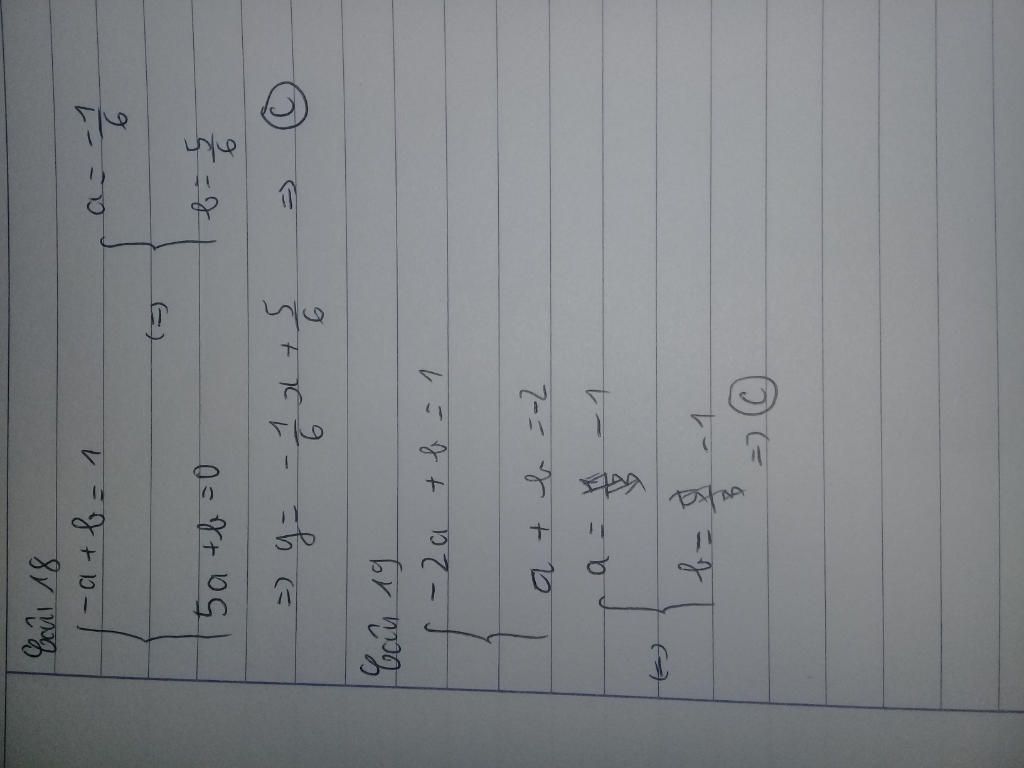 Câu 18
{ -a + b = 1
{ 5a + b = 0
(=)
{ a = -1/6
{ b = 5/6
=) y = -1/6 x + 5/6 =) C
Câu 19
{ -2a + b = 1
{ a + b = -2
(=) { a = -1
{ b = -1
=) C